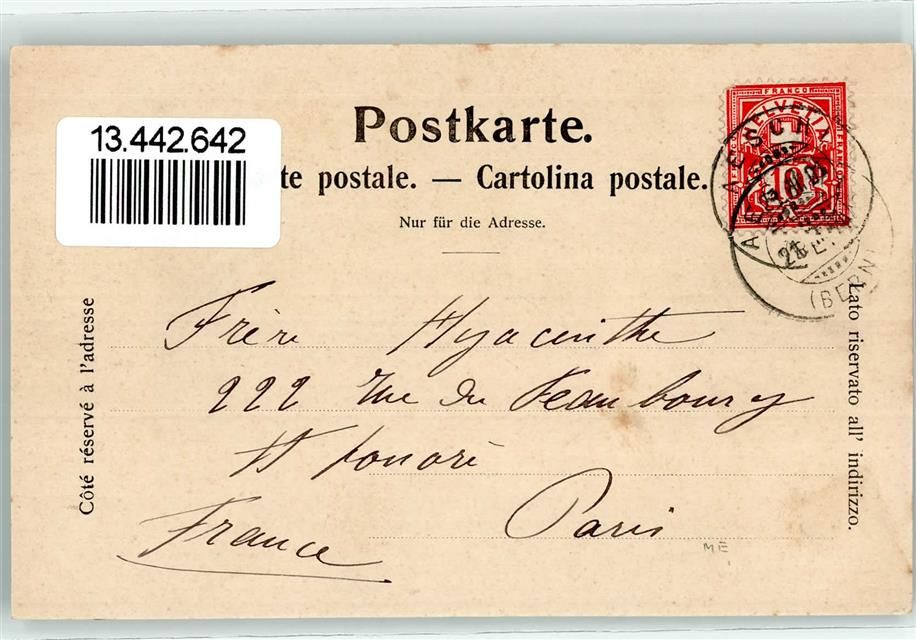 13.442.642
Postkarte.
te postale. — Cartolina postale.
Nur für die Adresse.
FRANCO
HELVETIA
10
AESCH
(BERN)
Côté réservé à l'adresse
Lato riservato all' indirizzo.
Frère Hyacinthe
222 Rue du Feaubourg
St Honoré
Paris
France
ME